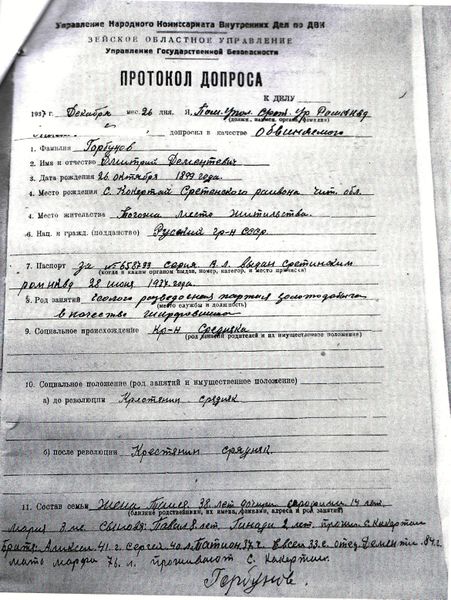 Управление Народного Комиссариата Внутренних Дел по ДВК
ЗЕЙСКОЕ ОБЛАСТНОЕ УПРАВЛЕНИЕ
Управление Государственной Безопасности
ПРОТОКОЛ ДОПРОСА
К ДЕЛУ
1937 г. Декабря мес. 26 дня. Я, Пом. Упол.
(должн., наимен. органа, фамилия)
допросил в качестве обвиняемого
1. Фамилия Горбунов
2. Имя и отчество Дмитрий Дементевич
3. Дата рождения 26 октября 1899 года.
4. Место рождения С. Кокертай Сретенского раиона Чит. обл.
4. Место жительства место жительства.
6. Нац. и гражд. (подданство) Русский гр-н СССР.
7. Паспорт За № 658799 выдан Сретинским
(когда и каким органом выдан, номер, категор. и место прописки)
28 июня 1934 года.
8. Род занятий разведосная партия
(место службы и должность)
в качестве
9. Социальное происхождение Кр-н Средняка
(род занятий родителей и их имущественное положение)
10. Социальное положение (род занятий и имущественное положение)
а) до революции средняк
б) после революции Крестянин
11. Состав семьи Жена 38 лет 14 лет,
(близкие родственники, их имена, фамилии, адреса и род занятий)
Мария 3 Павел 8 лет, 2 лет, С. Кокертай
41 г. Сергей 40 л. 37 г. Евсей 33 г. отец Дементи 84 г.
мать марфа 76 л. проживают С. Кокертаи.
Горбунов.